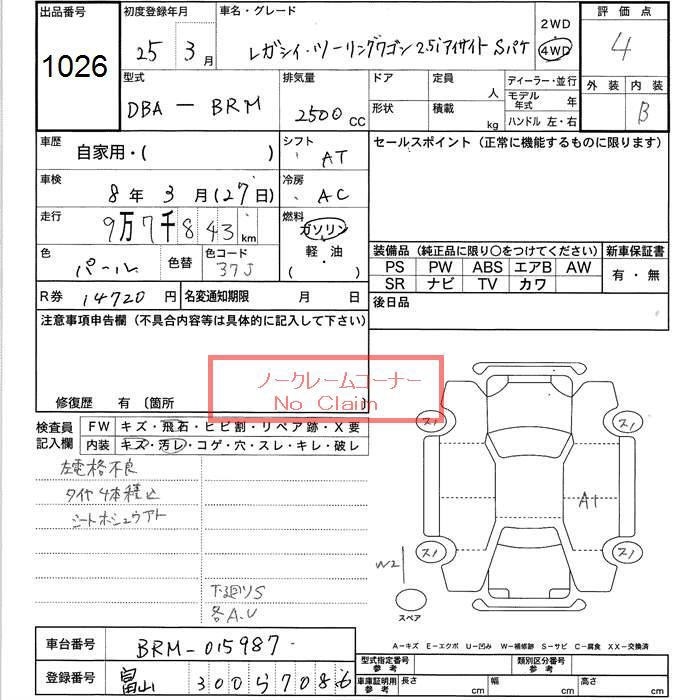 出品番号
1026
初度登録年月
25年 3月
車名・グレード
レガシィ・ツーリングワゴン 2.5iアイサイト Sパケ
2WD
4WD
評価点
4
外装
内装
B
型式
DBA - BRM
排気量
2500 CC
ドア
形状
定員
人
積載
kg
ディーラー・並行
モデル年式
年
ハンドル 左・右
車歴
自家用・( )
シフト
AT
セールスポイント (正常に機能するものに限ります)
車検
8年 3月 (27日)
冷房
AC
走行
9万7千843km
燃料
ガソリン
軽・油
( ・ )
色
パール
色替
色コード
37J
装備品 (純正品に限り〇をつけてください)
PS PW ABS エアB AW
SR ナビ TV カワ
新車保証書
有・無
R券 14720円
名変通知期限 月 日
後日品
注意事項申告欄 (不具合内容等は具体的に記入して下さい)
ノークレームコーナー
No Claim
修復歴 有 〔箇所
検査員記入欄
FW キズ・飛石・ヒビ割・リペア跡・X要
内装 キズ・汚レ・コゲ・穴・スレ・キレ・破レ
左電格不良
タイヤ4本積込
シートホシュウアト
下廻りS
各A.U
スノ
スノ
A1
スノ
スノ
W2
スペア
A-キズ E-エクボ U-凹み W-補修跡 S-サビ C-腐食 XX-交換済
車台番号
BRM-015987
登録番号
富山 300 5 7086
型式指定番号 参考
類別区分番号 参考
車庫証明用 参考
長さ cm
幅 cm
高さ cm